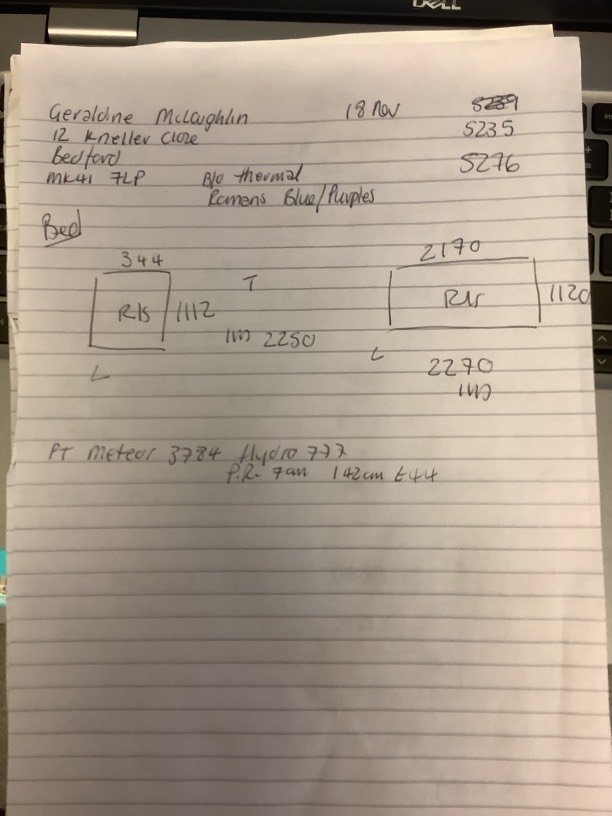 DELL
Geraldine McLaughlin 18 Nov 5239
12 Kneller Close 5235
Bedford 5276
MK41 7LP B/o thermal
Romans Blue/Purples
Bed
344 2170
R/s 1112 T R/s 1120
L 2250 L 2270
PT Meteor 3784 Hydro 777
P.R. 7cm 142cm £44